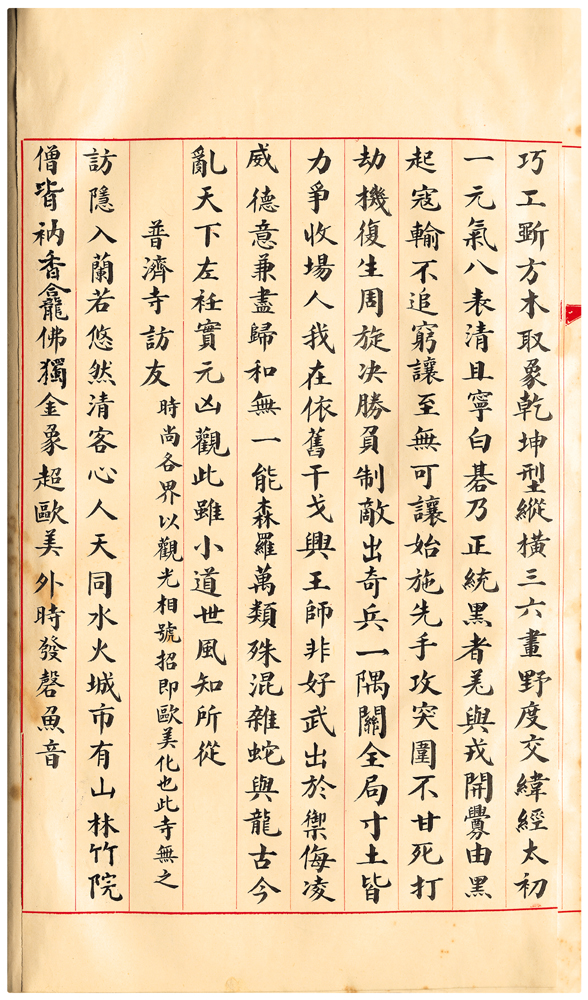 巧工斲方木取象乾坤型縱橫三六畫野度交緯經太初
一元氣八表清且寧白碁乃正統黑者羌與戎開釁由黑
起寇輸不追窮讓至無可讓始施先手攻突圍不甘死打
劫機復生周旋決勝負制敵出奇兵一隅關全局寸土皆
力爭收場人我在依舊干戈興王師非好武出於禦侮凌
威德意兼盡歸和無一能森羅萬類殊混雜蛇與龍古今
亂天下左衽實元凶觀此雖小道世風知所從
普濟寺訪友 時尚各界以觀光相號招即歐美化也此寺無之
訪隱入蘭若悠然清客心人天同水火城市有山林竹院
僧皆衲香龕佛獨金象超歐美外時發磬魚音